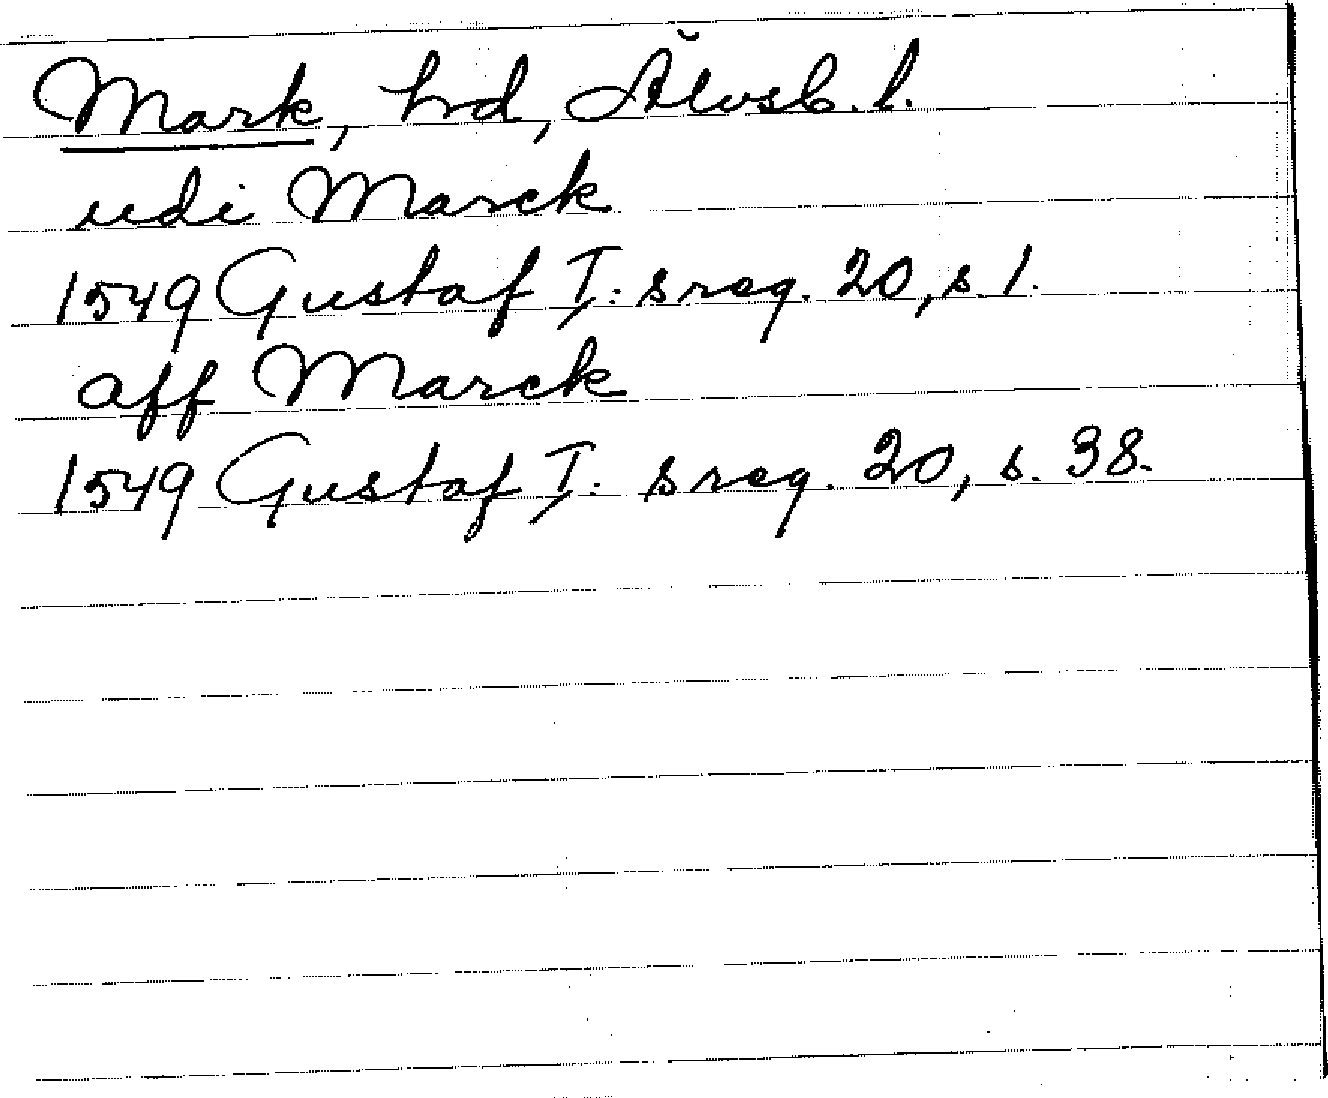 Mark, hd, Älvsb. l.
udi Marck
1549 Gustaf I: s reg. 20, s. 1.
aff Marck
1549 Gustaf I: s reg. 20, s. 38.